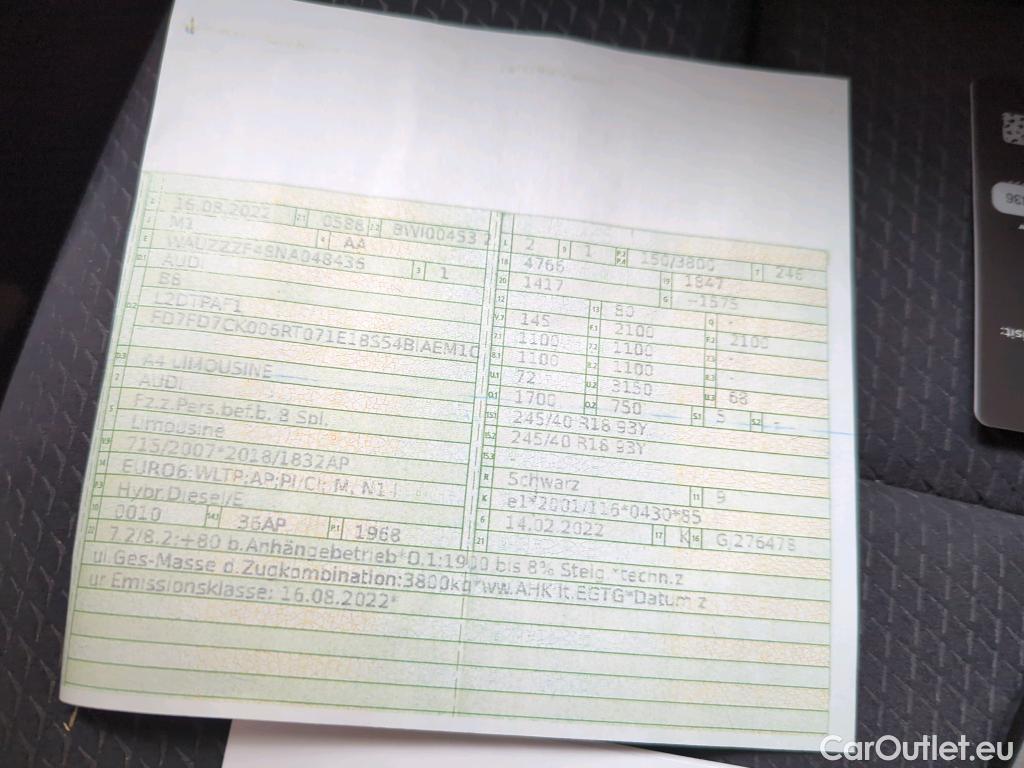 B 16.08.2022 2.1 0588 2.2 BWI00453 2
J M1 4 AA
E WAUZZZF4SNA048435 3 1
D.1 AUDI
B8
D.2 L2DTPAF1
FD7FD7CK006RT071E18S54BIAEM1C
D.3 A4 LIMOUSINE
2 AUDI
5 Fz.z.Pers.bef.b. 8 Spl.
Limousine
V.9 715/2007*2018/1832AP
14 EURO6;WLTP;AP;PI/CI; M, N1 I
P.3 Hybr.Diesel/E
10 0010 14.1 36AP P.1 1968
22 7.2/8.2:+80 b.Anhängebetrieb*O.1:1900 bis 8% Steig.*techn.z
ul.Ges-Masse d.Zugkombination:3800kg*ww.AHK lt.EGTG*Datum z
ur Emissionsklasse: 16.08.2022*
L 2 9 1 P.2 P.4 150/3800 T 246
18 4766 19 1847
20 1417 G -1575
12 - 13 80 Q -
V.7 145 F.1 2100 F.2 2100
7.1 1100 7.2 1100 7.3 -
8.1 1100 8.2 1100 8.3 -
U.1 72 U.2 3150 U.3 68
O.1 1700 O.2 750 S.1 5 S.2 -
15.1 245/40 R18 93Y
15.2 245/40 R18 93Y
15.3 -
R Schwarz 11 9
K e1*2001/116*0430*85
6 14.02.2022 17 K 16 GJ276478
21
CarOutlet.eu